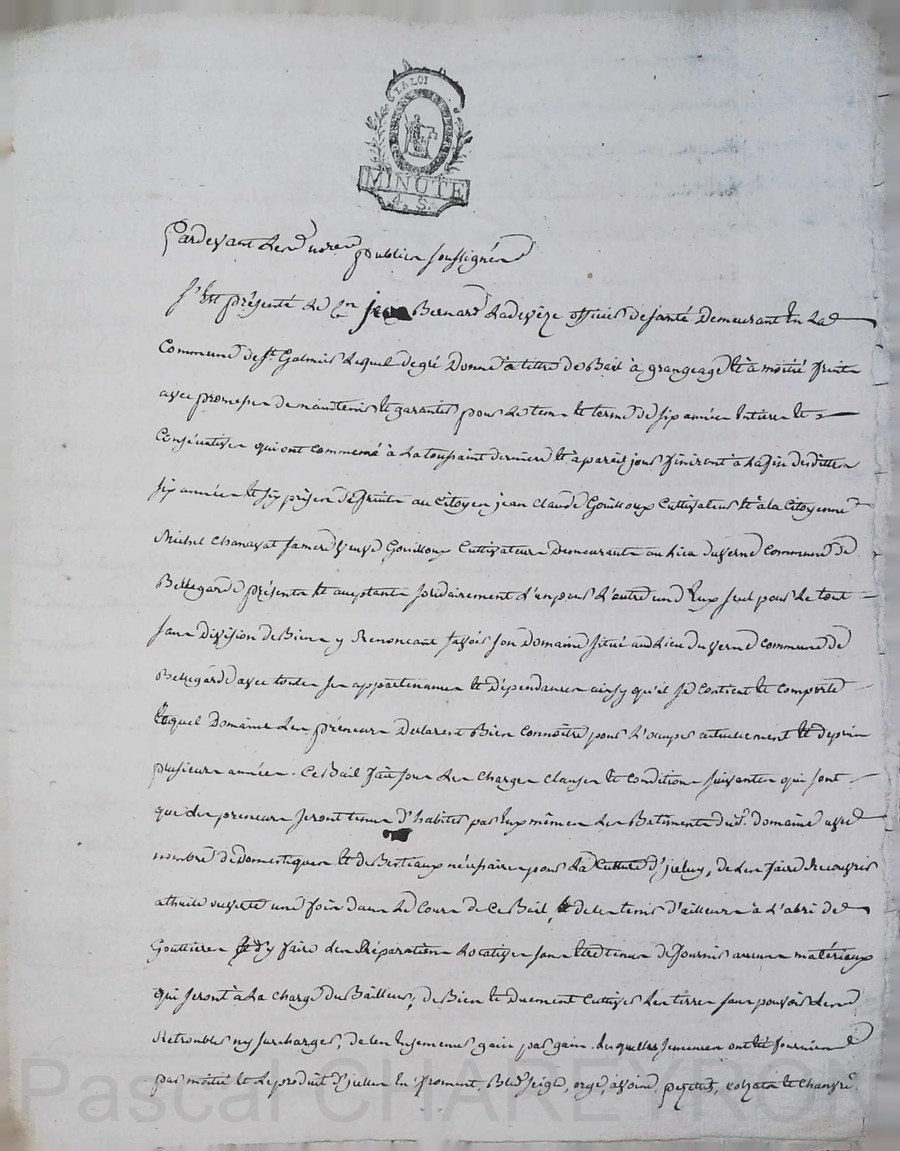 LA LOI
MINUTE
A. S.
Pardevant les nores publics soussignés
S'est présenté le Cen Jean Bernard Ladevèze officier de santé demeurant en la
Commune de St. Galmier lequel de gré donne à titre de Bail à grangeage et à moitié fruits
avec promesse de maintenir et garantir pour le tems et terme de six années entieres et
Consécutives qui ont commencé à la toussaint derniere et à pareil jour finiront à la fin desdittes
six années et six prises de fruits au Citoyen jean Claude Gouilloux Cultivateur et à la Citoyenne
Michel Chanavat sa mere veuve Gouilloux Cultivateurs demeurants au lieu du verne commune de
Bellegarde présents et acceptants solidairement l'un pour l'autre un d'Eux seul pour le tout
sans division de Biens y Renonçant savoir son Domaine situé audit lieu du verne commune de
Bellegarde avec toutes ses appartenances et Dépendances ainsy qu'il se contient et comporte
lequel Domaine les preneurs Declarent Bien connoître pour l'occuper actuellement et depuis
plusieurs années. Ce Bail fait sous les charges clauses et conditions suivantes qui sont
que les preneurs seront tenus d'habiter par Eux mêmes les Batiments dud. domaine avec
nombre de Domestiques et de Bestiaux nécessaires pour la Culture d'iceluy, de les faire Recouvrir
à thuile une fois dans le Cours de Ce Bail, et de les tenir d'ailleurs à l'abri de
Gouttieres et d'y faire les Réparations Locatives sans Etre tenus de fournir aucuns matériaux
qui seront à la charge du Bailleur, de Bien et Duement Cultiver les terres sans pouvoir les
Retroubler ny surcharger, de les Ensemencer gain par gain. lesquelles semences ont été fournies
par moitié et le produit d'icelles En froment, Bled seigle, orge, avoine, pezettes, colzats et Chanvre
Pascal CHAREYRON